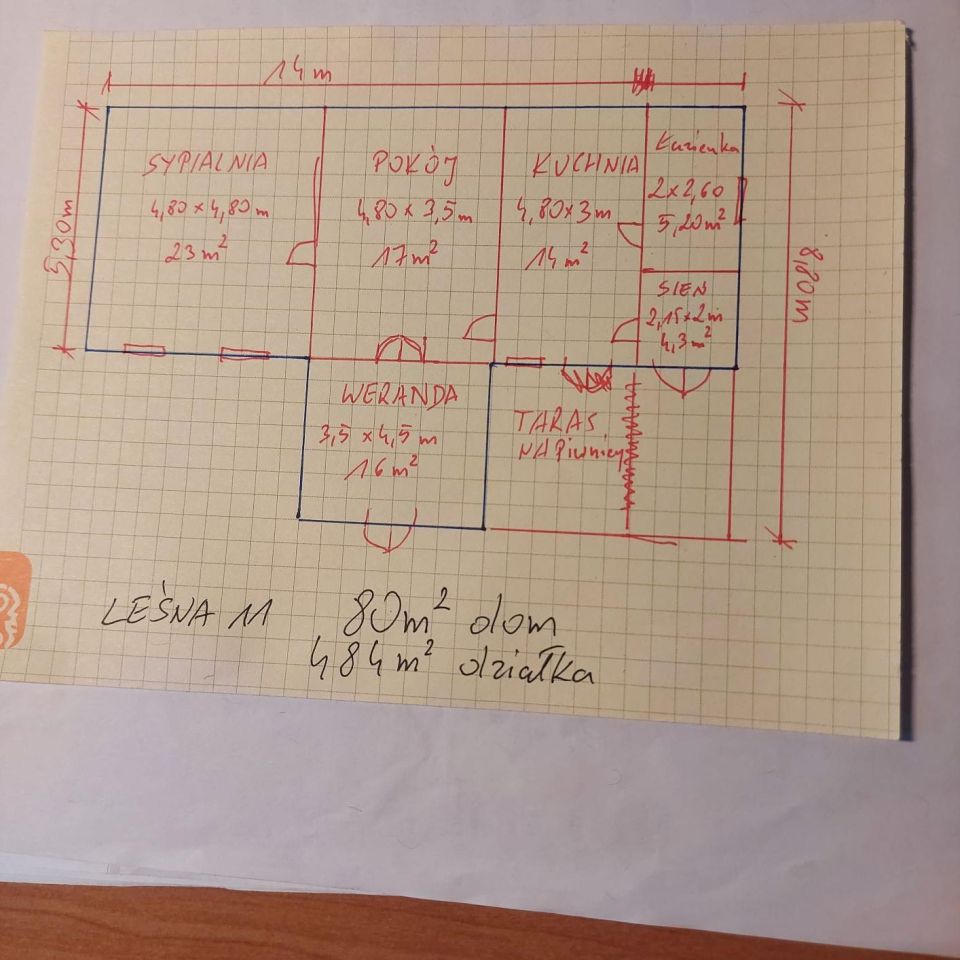 14 m
5,30m
SYPIALNIA
4,80 x 4,80m
23 m²
POKÓJ
4,80 x 3,5m
17 m²
KUCHNIA
4,80 x 3m
14 m²
Łazienka
2 x 2,60
5,20m²
SIEN
2,15 x 2m
4,3 m²
8,80m
WERANDA
3,5 x 4,5 m
16 m²
TARAS
NA Piwnicy
LEŚNA 11
80m² dom
484m² działka